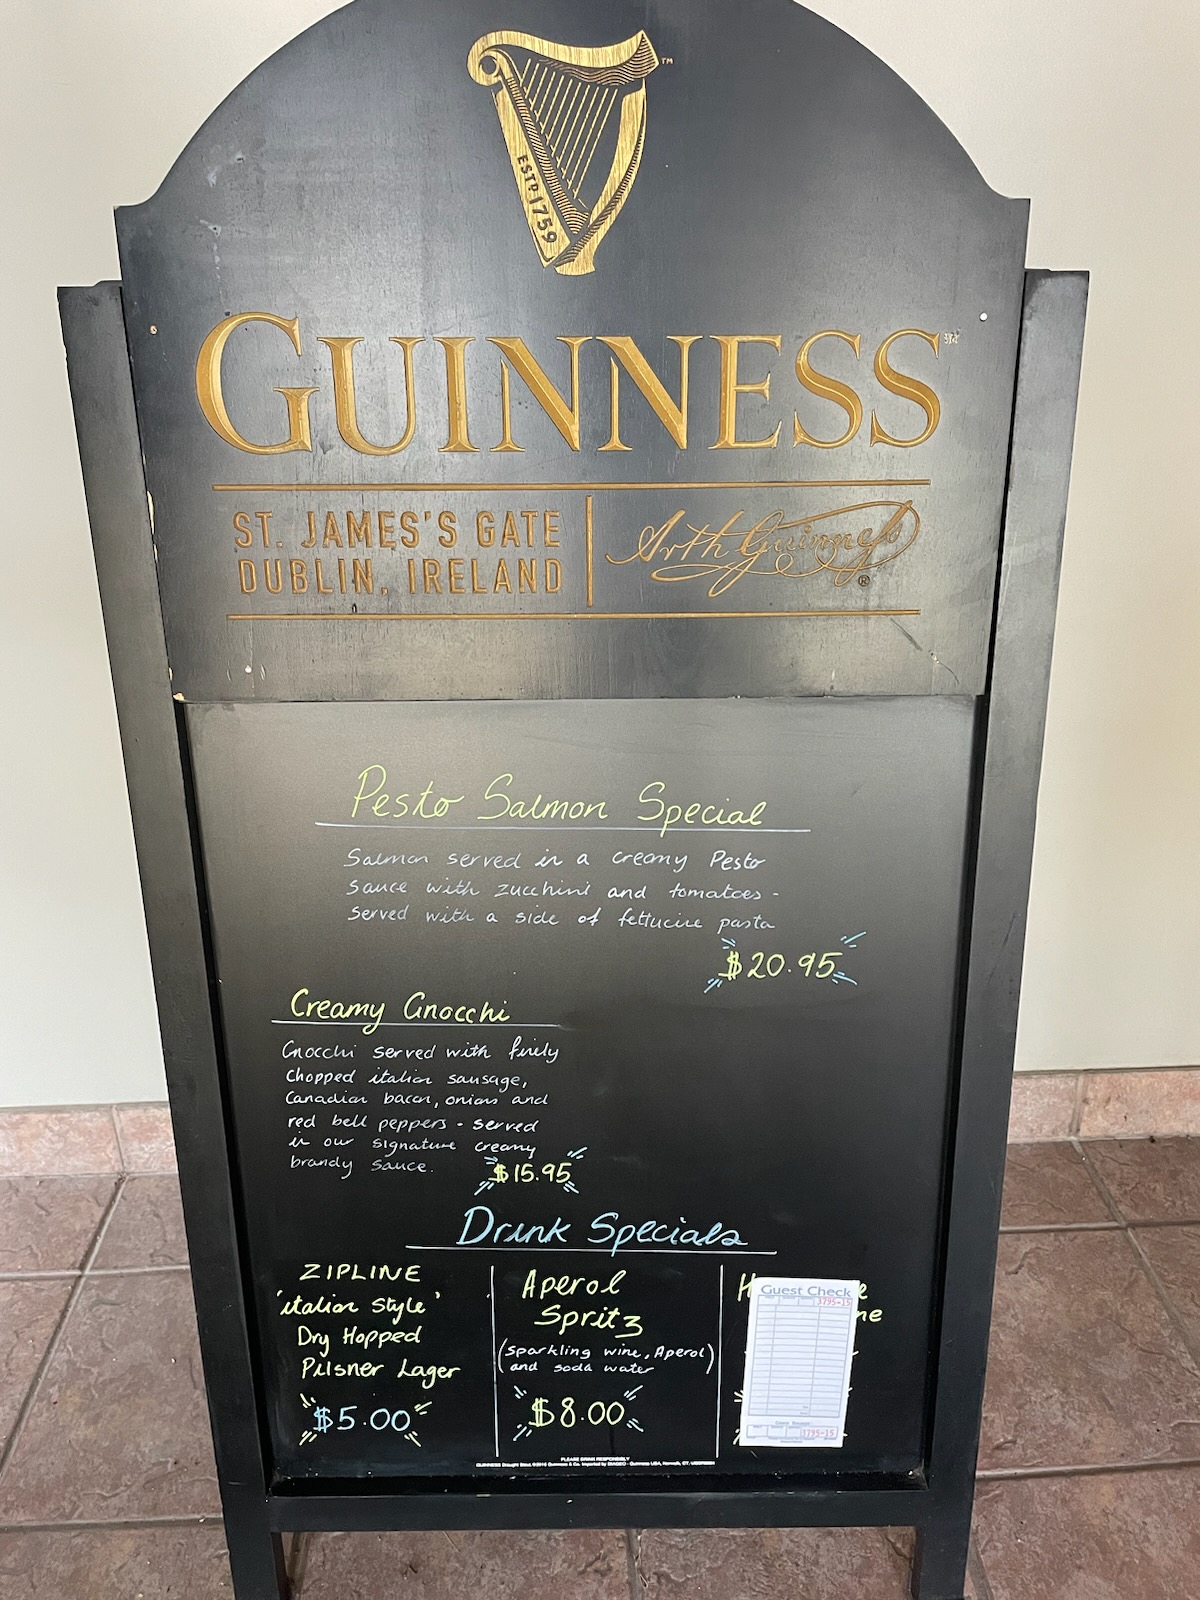 ESTD 1759
GUINNESS™
ST. JAMES'S GATE
DUBLIN, IRELAND
Arth Guinness
®
Pesto Salmon Special
Salmon served in a creamy Pesto
sauce with zucchini and tomatoes -
served with a side of fettucine pasta
$20.95
Creamy Gnocchi
Gnocchi served with finely
chopped italian sausage,
Canadian bacon, onions and
red bell peppers - served
in our signature creamy
brandy sauce.
$15.95
Drink Specials
ZIPLINE
'italian style'
Dry Hopped
Pilsner Lager
$5.00
Aperol
Spritz
(sparkling wine, Aperol)
and soda water
$8.00
Guest Check
3795-15
3795-15
PLEASE DRINK RESPONSIBLY